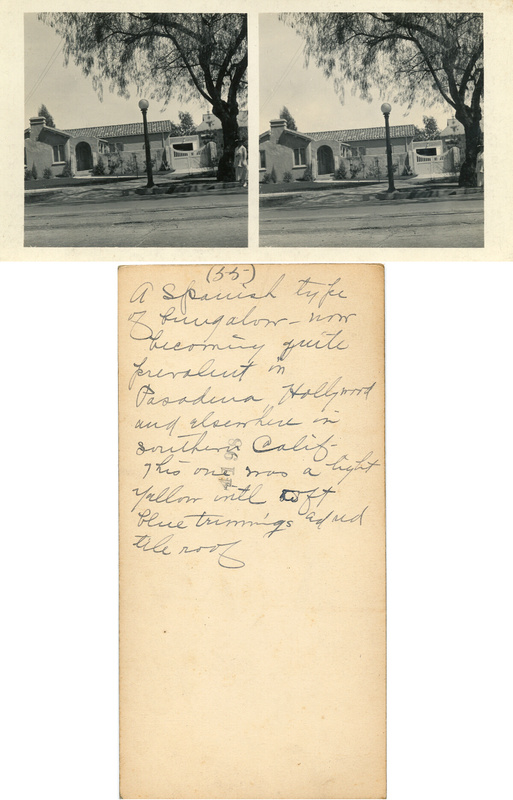 (55)
A Spanish type
of bungalow - now
becoming quite
prevalent in
Pasadena, Hollywood
and elsewhere in
southern Calif-
This one was a light
yellow with soft
blue trimmings ad red
tile roof